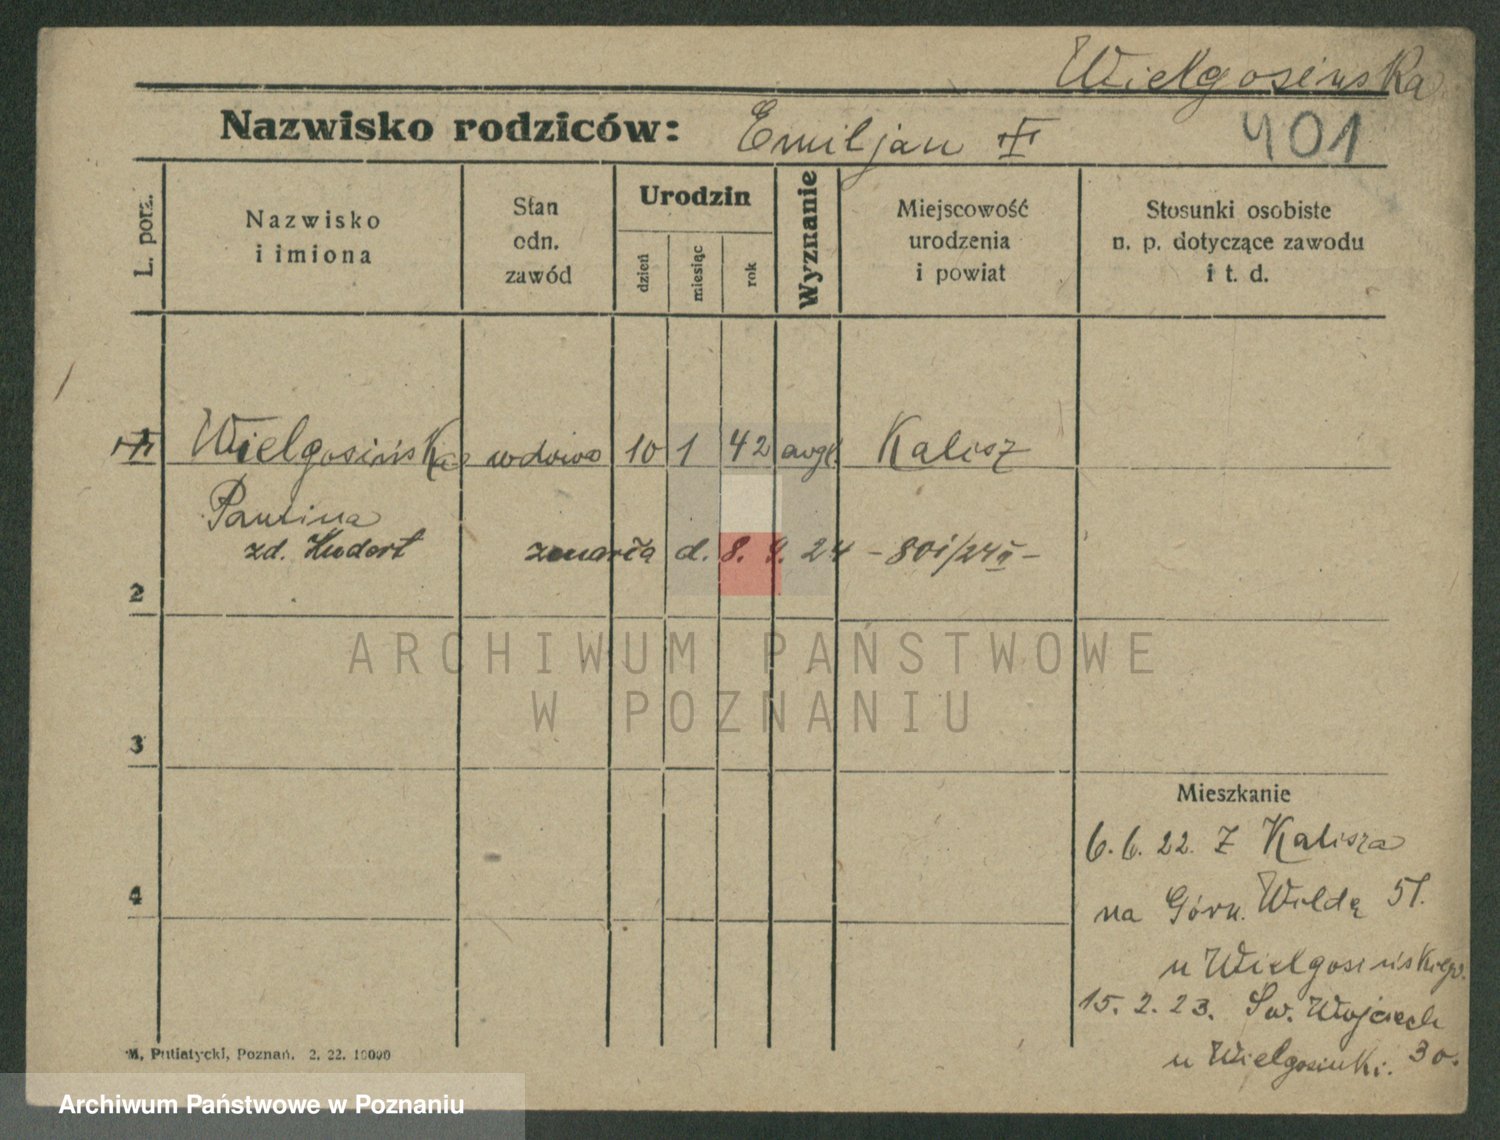 Wielgosińska
Nazwisko rodziców: Emiljan
401
L. porz.
Nazwisko i imiona
Stan odn. zawód
Urodzin
dzień
miesiąc
rok
Wyznanie
Miejscowość urodzenia i powiat
Stosunki osobiste n. p. dotyczące zawodu i t. d.
Wielgosińska wdowa 10 1 42 Kalisz
Paulina
zd. Hudert zmarła d. 8. 9. 24
2
ARCHIWUM PAŃSTWOWE
W POZNANIU
3
4
Mieszkanie
6.6.22. Z Kalisza
na Górn. Wildę 51.
u Wielgosińskiego.
15.2.23. Św. Wojciech
u Wielgosinki. 30.
M. Putiatycki, Poznań. 2. 22. 10000
Archiwum Państwowe w Poznaniu